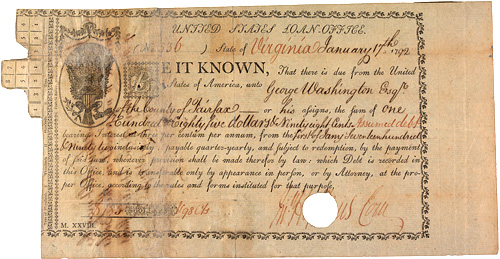 UNITED STATES LOAN-OFFICE.
No 556 ) State of Virginia January 17th 1792
BE IT KNOWN, That there is due from the United
States of America, unto George Washington Esqr
of the County of Fairfax or his assigns, the sum of one
Hundred Eighty five dollars & Ninety eight Cents Assumed debt
bearing Interest at three per centum per annum, from the first of Jany Seventeen hundred
& Ninety two inclusively, payable quarter-yearly, and subject to redemption, by the payment
of said sum, whenever provision shall be made therefor by law: which Debt is recorded in
this Office, and is transferable only by appearance in person, or by Attorney, at the pro-
per Office, according to the rules and forms instituted for that purpose.
DOLLARS 98 Cts
M. XXVIII.